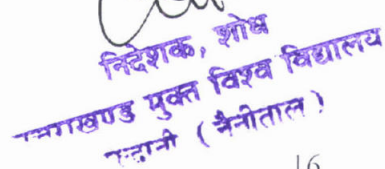 निदेशक, शोध
उत्तराखण्ड मुक्त विश्व विद्यालय
हल्द्वानी ( नैनीताल )
16